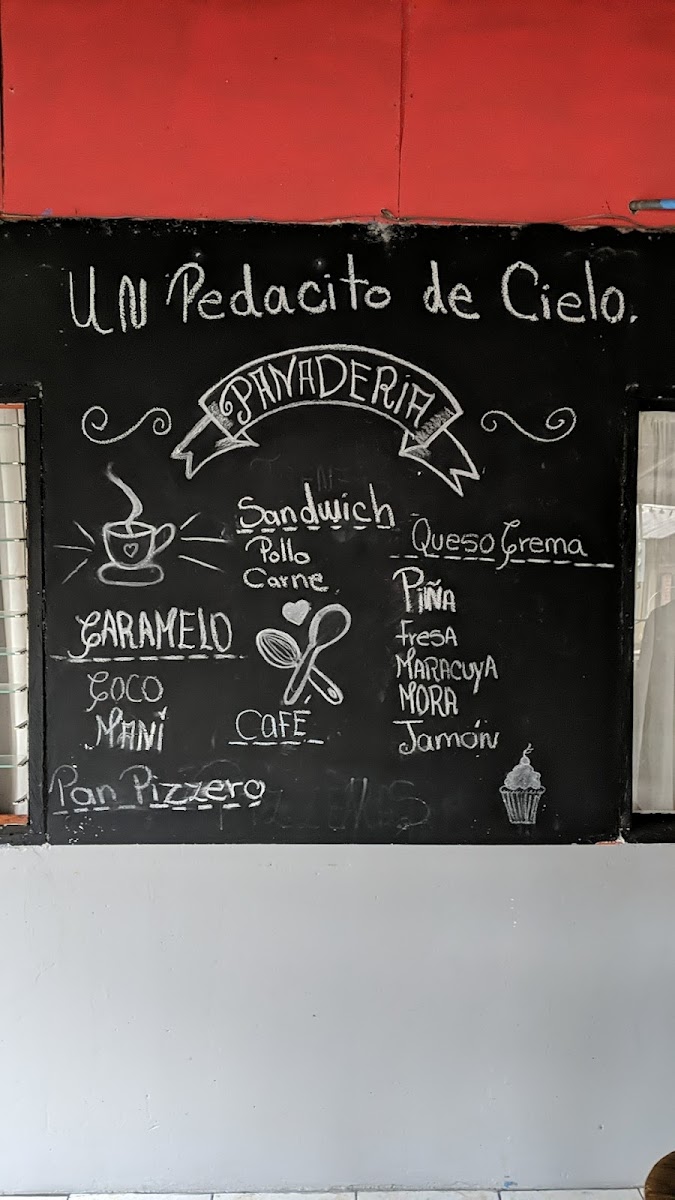 UN Pedacito de Cielo.
PANADERÍA
Sandwich
Pollo
Carne
Queso Crema
Piña
Fresa
MARACUYA
MORA
Jamón
CARAMELO
COCO
MANÍ
CAFÉ
Pan Pizzero